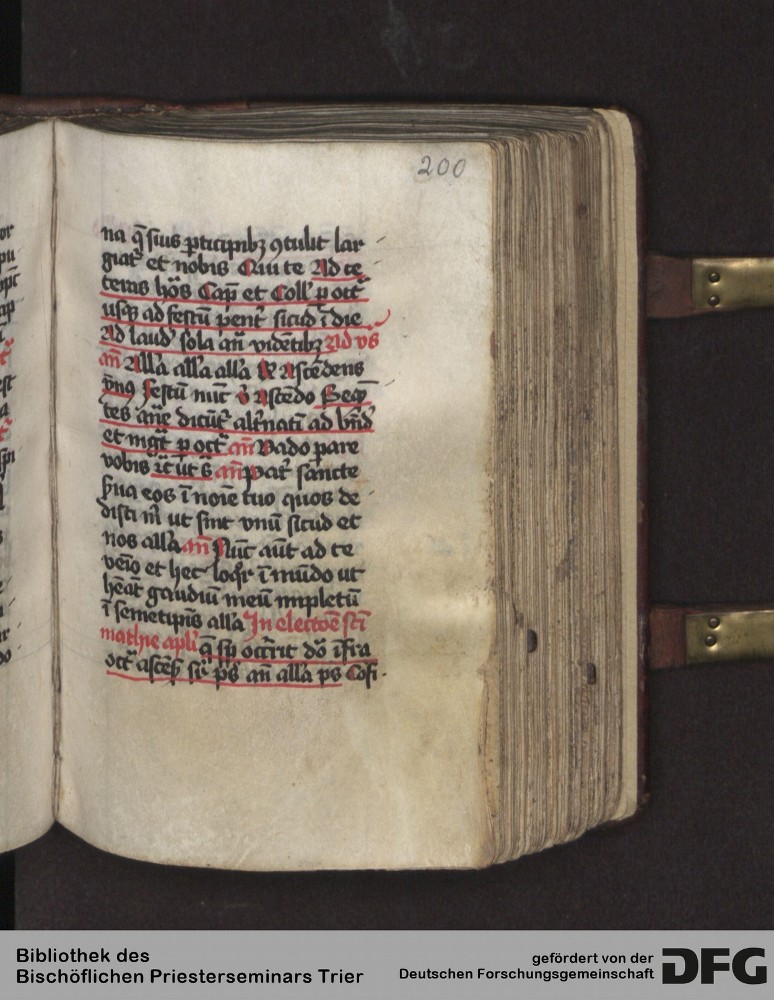 200
na q̄ suis ꝑticipibꝫ ꝯtulit lar
giatˀ et nobis Qui te Ad ce
teras hōs Cap̄ et Coll̄ ꝑ octˀ
usqꝫ ad festū pentˀ sicud ī die
Ad laudˀ sola an̄ vidētibꝫ Ad vs̄
an̄ All'a all'a all'a R̄ Ascēdens
festū nūc v̄ Ascēdo Seqn̄
tes an̄e dicūtˀ alt'natī ad bn̄dˀ
et mgt̄ ꝑ octˀ an̄ Vado pare
vobis rc̄ ut sˢ an̄ patˀ sancte
s̄ua eos ī noīe tuo quos de
disti m̄ ut sint vnū sicud et
nos all'a an̄ Nūc aūt ad te
venio et hec loqˀr ī mūdo ut
hēāt gaudiū meū impletū
ī semetipīs all'a In electōe sc̄i
mathie apl'i q̄ sꝑ occˀrit dō īfra
octˀ ascēs̄ suꝑ ps̄ an̄ all'a ps̄ Cōfi
Bibliothek des
Bischöflichen Priesterseminars Trier
gefördert von der
Deutschen Forschungsgemeinschaft
DFG